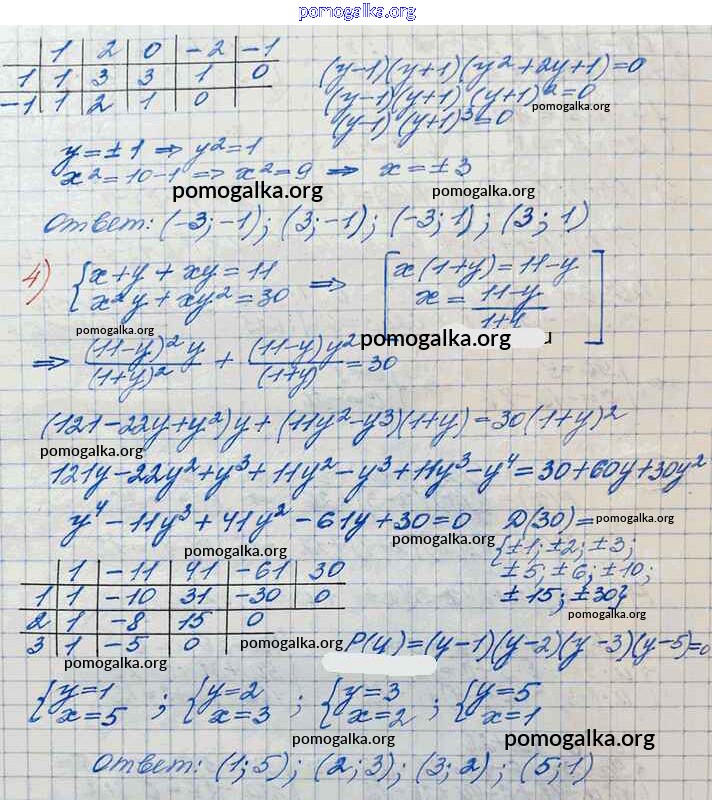 pomogalka.org
1 2 0 -2 -1
1 1 3 3 1 0
-1 1 2 1 0
(y-1)(y+1)(y²+2y+1)=0
(y-1)(y+1)(y+1)²=0
pomogalka.org
(y-1)(y+1)³=0
y=±1 ⇒ y²=1
x²=10-1 ⇒ x²=9 ⇒ x=±3
pomogalka.org pomogalka.org
Ответ: (-3;-1); (3;-1); (-3;1); (3;1)
4) { x+y+xy=11 ⇒ [ x(1+y)=11-y
x²y+xy²=30 x= (11-y)/(1+y) ]
pomogalka.org
pomogalka.org u
⇒ (11-y)²y/(1+y)² + (11-y)y²/(1+y) =30
(121-22y+y²)y+(11y²-y3)(1+y)=30(1+y)²
pomogalka.org
121y-22y²+y³+11y²-y³+11y³-y⁴=30+60y+30y²
y⁴-11y³+41y²-61y+30=0 D(30)=
pomogalka.org
pomogalka.org
pomogalka.org
{±1; ±2; ±3;
±5; ±6; ±10;
±15; ±30}
pomogalka.org
1 -11 41 -61 30
1 1 -10 31 -30 0
2 1 -8 15 0
3 1 -5 0
pomogalka.org
pomogalka.org
P(y)=(y-1)(y-2)(y-3)(y-5)=0
{ y=1 ; { y=2 ; { y=3 ; { y=5
x=5 x=3 x=2 x=1
pomogalka.org pomogalka.org
Ответ: (1;5); (2;3); (3;2); (5;1)